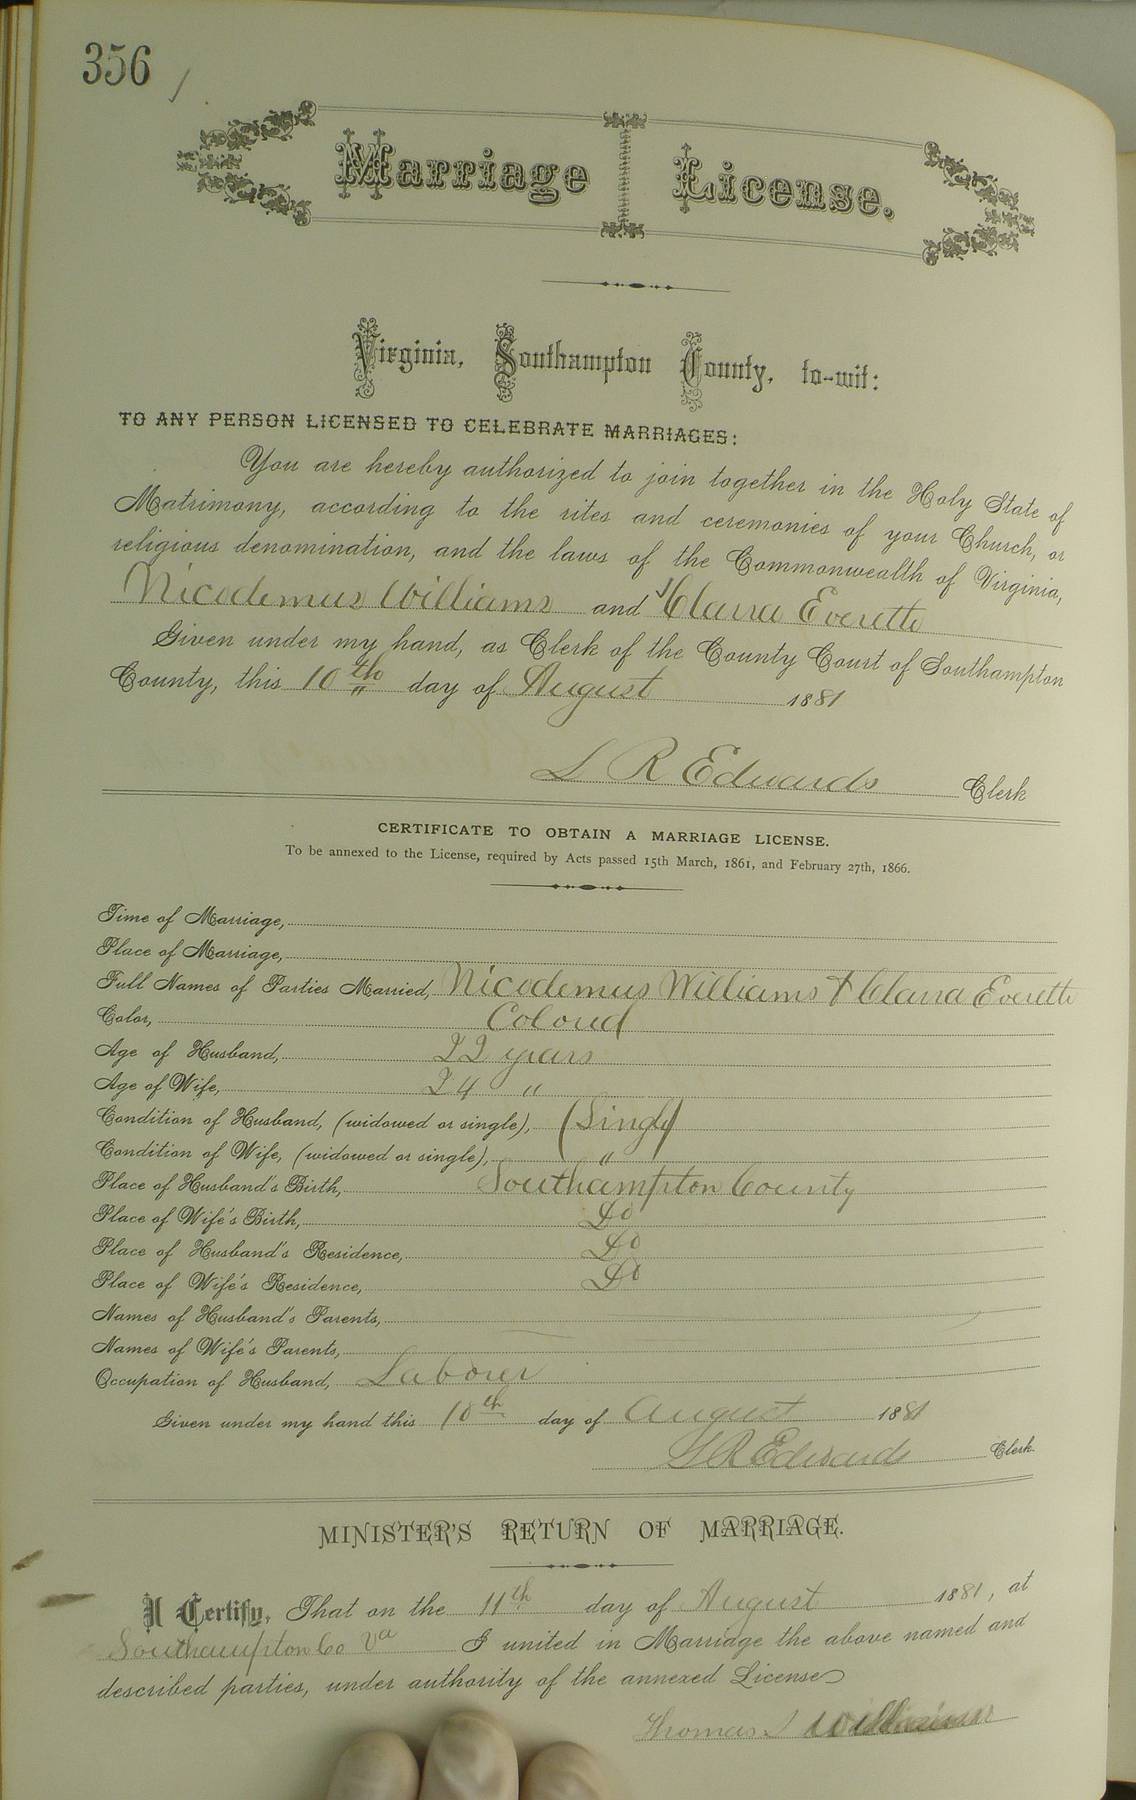 356
Marriage License.
Virginia, Southampton County, to-wit:
TO ANY PERSON LICENSED TO CELEBRATE MARRIAGES:
You are hereby authorized to join together in the Holy State of
Matrimony, according to the rites and ceremonies of your Church, or
religious denomination, and the laws of the Commonwealth of Virginia,
Nicodemus Williams and Clara Everette
Given under my hand, as Clerk of the County Court of Southampton
County, this 10th day of August 1881
L R Edwards Clerk
CERTIFICATE TO OBTAIN A MARRIAGE LICENSE.
To be annexed to the License, required by Acts passed 15th March, 1861, and February 27th, 1866.
Time of Marriage,
Place of Marriage,
Full Names of Parties Married, Nicodemus Williams & Clara Everette
Color, Colored
Age of Husband, 22 years
Age of Wife, 24 "
Condition of Husband, (widowed or single), (Single)
Condition of Wife, (widowed or single), "
Place of Husband's Birth, Southampton County
Place of Wife's Birth, Do
Place of Husband's Residence, Do
Place of Wife's Residence, Do
Names of Husband's Parents,
Names of Wife's Parents,
Occupation of Husband, Laborer
Given under my hand this 10th day of August 1881
L R Edwards Clerk
MINISTER'S RETURN OF MARRIAGE.
I Certify, That on the 11th day of August 1881, at
Southampton Co Va I united in Marriage the above named and
described parties, under authority of the annexed License
Thomas Williams